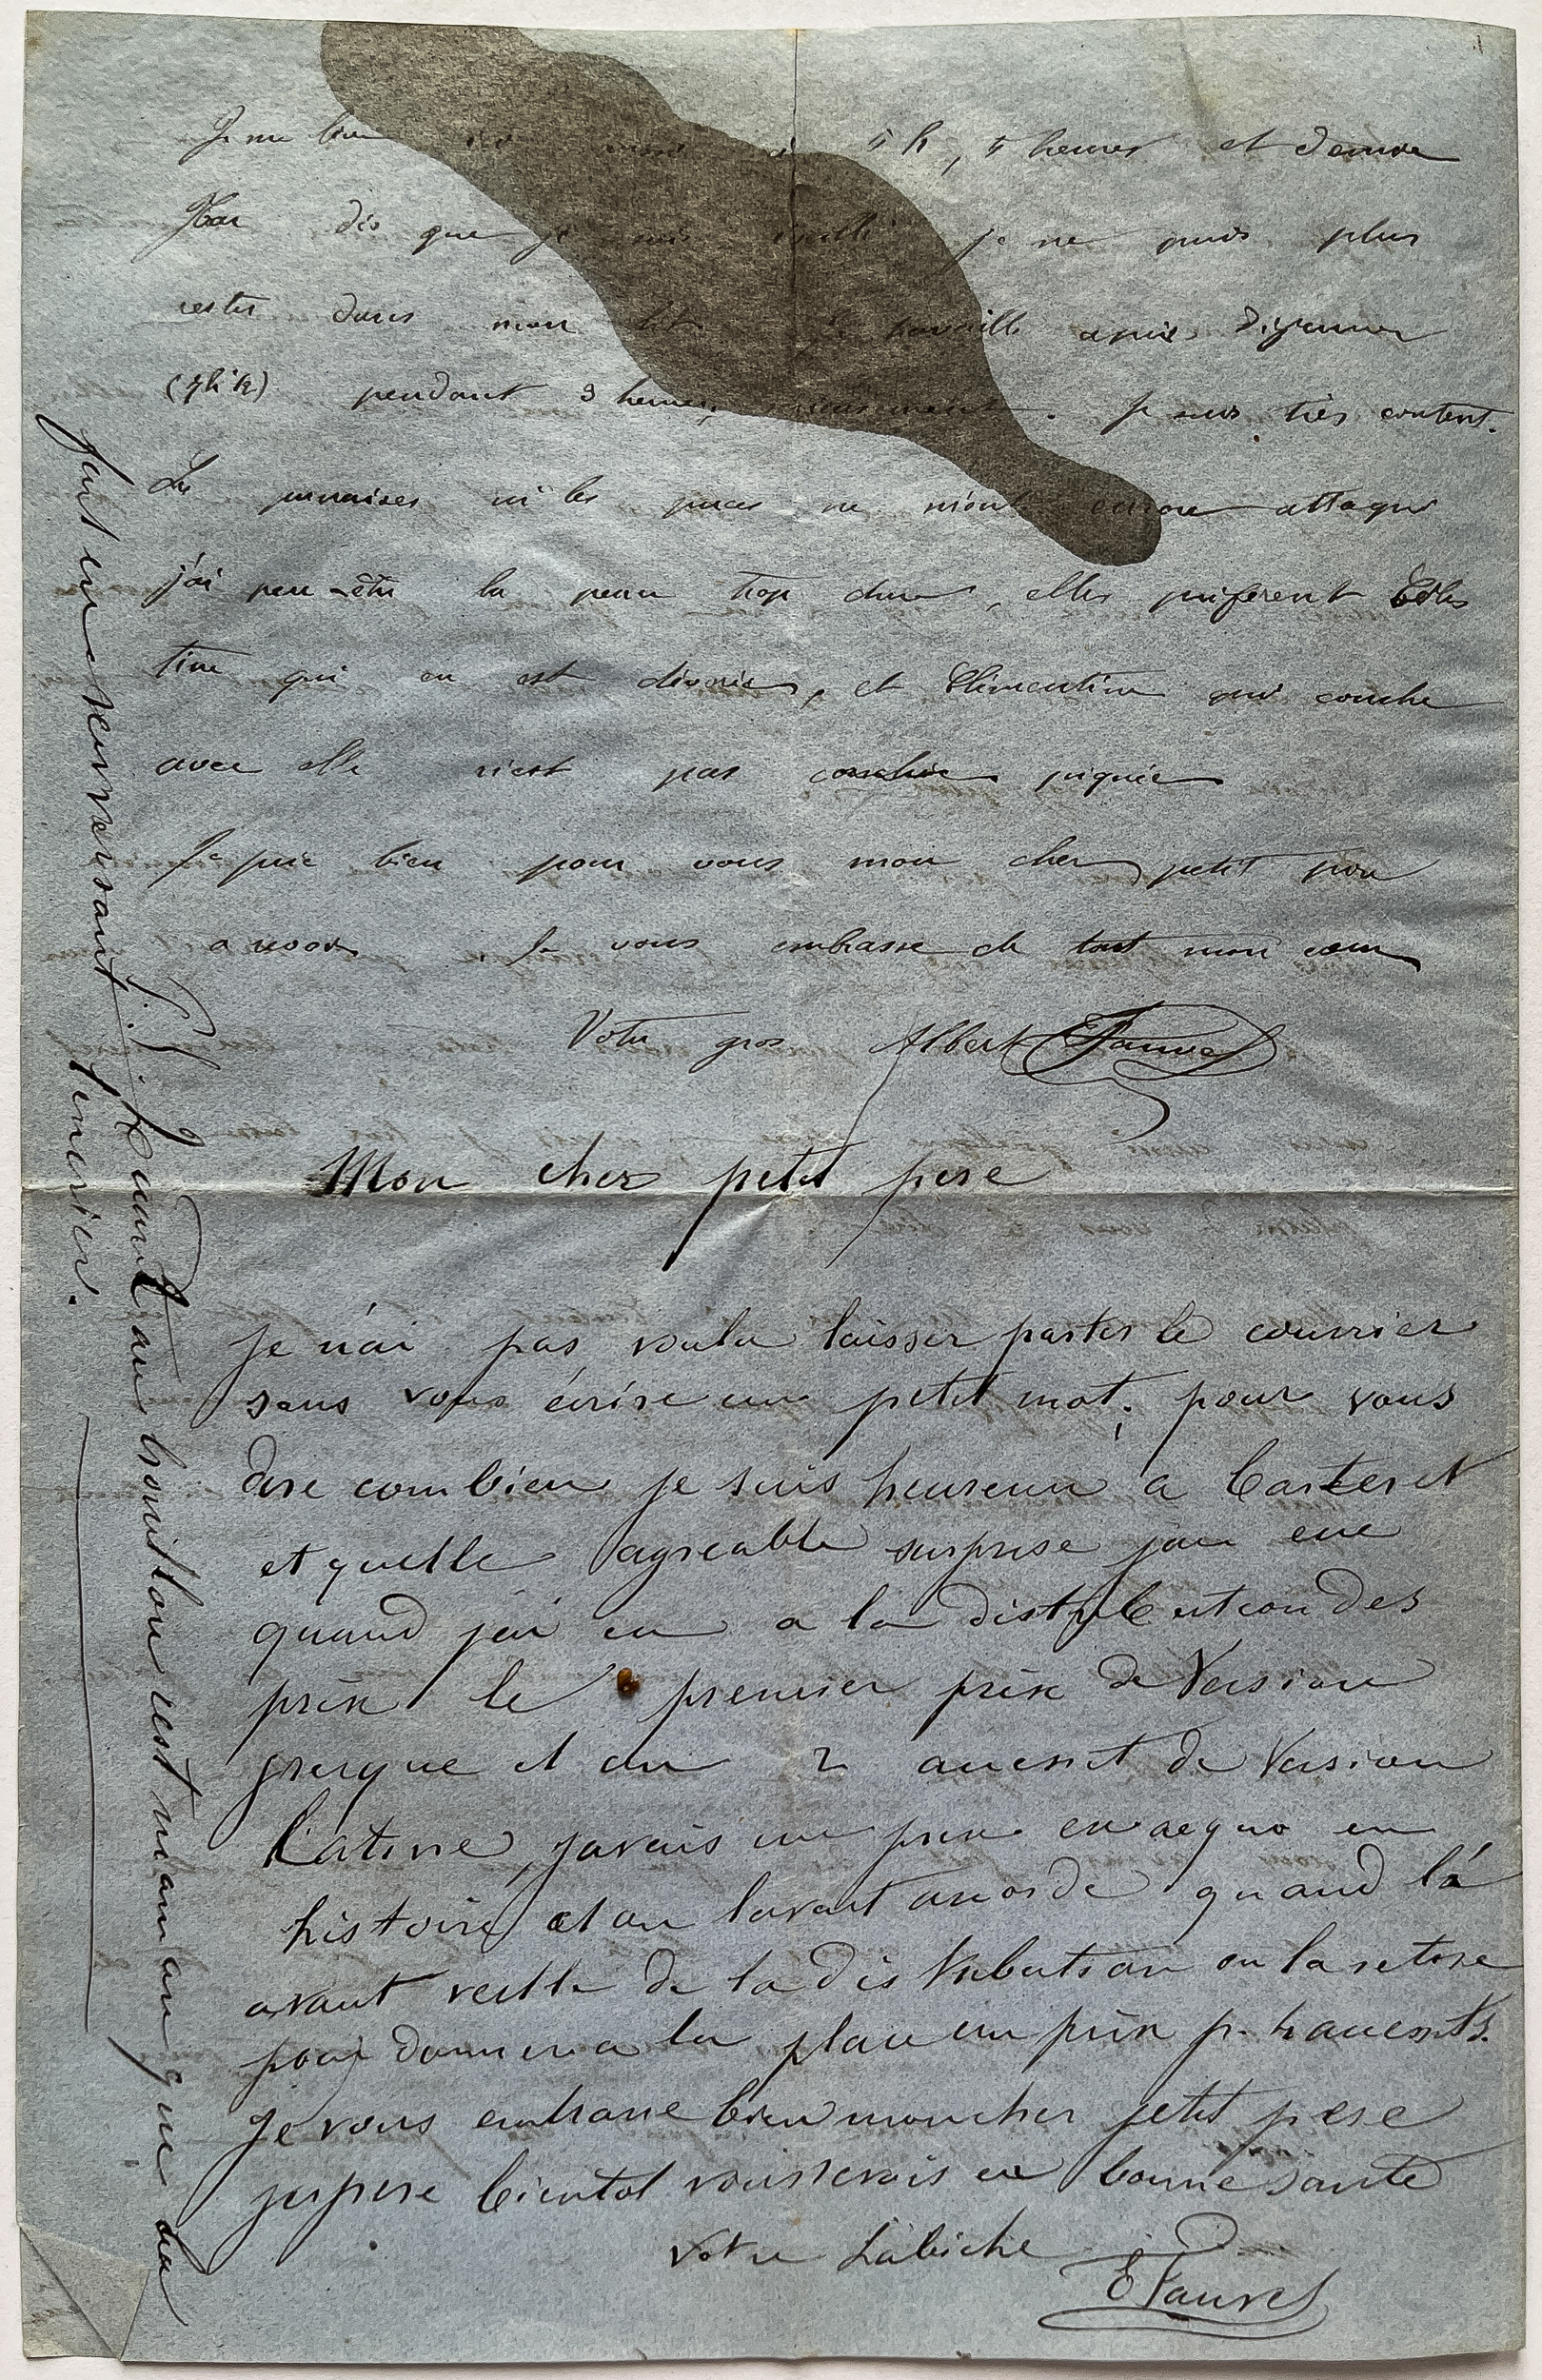 Je me lève à 5 h, 5 heures et demie
Car dès que je suis éveillé je ne puis plus
rester dans mon lit Je travaille après déjeuner
(7h ½) pendant 3 heures, Je suis très content.
Les punaises ni les puces ne m'ont encore attaqué
j'ai peu-être la peau trop dure, elles préfèrent Céles
tine qui en est dévorée, et Clémentine qui couche
avec elle n'est pas couchée piquée
Je prie bien pour vous mon cher petit père
a revoir Je vous embrasse de tout mon cœur
Votre gros Albert Fauvel
Mon cher petit pere
je n'ai pas voulu laisser partir le courrier
sans vous écrire un petit mot, pour vous
dire combien je suis heureux a Carteret
et quelle agreable surprise jai eue
quand jai eu a la distribution des
prix le premier prix de Version
grecque et un 2 accesit de Version
latine, javais un prix ex aequo en
histoire et on lavait accorde quand la
avant veille de la distribution on la retire
pour donner a la place un prix p. h accessits.
Je vous embrasse bien mon cher petit pere
jespere bientot vous revoir en bonne santé
votre Labiche
E Fauvel
P.S. Quant au brouillon cest maman qui la
fait en renversant
lencrier.